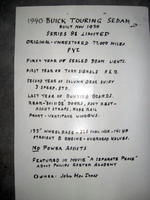 1940 BUICK TOURING SEDAN
BUILT NOV 1939
SERIES 81 LIMITED
ORIGINAL-UNRESTORED 77000 MILES
FYI
FIRST YEAR OF SEALED BEAM LIGHTS.
FIRST YEAR OF TURN SIGNALS
SECOND YEAR OF COLUMN GEAR SHIFT
3 SPEED, STD.
LAST YEAR OF RUNNING BOARDS.
REAR-SUICIDE DOORS, FOOT REST-
ASSIST STRAPS, ROBE ROPE
FRONT-VENTIPANE WINDOWS.
133" WHEEL BASE - 320 CUBIC INCH - 141 HP
STRAIGHT 8 ENGINE - OVERHEAD VALVES.
NO POWER ASSISTS
FEATURED IN MOVIE "A SEPARATE PEACE"
ABOUT PHILLIPS EXETER ACADEMY
OWNER: JOHN